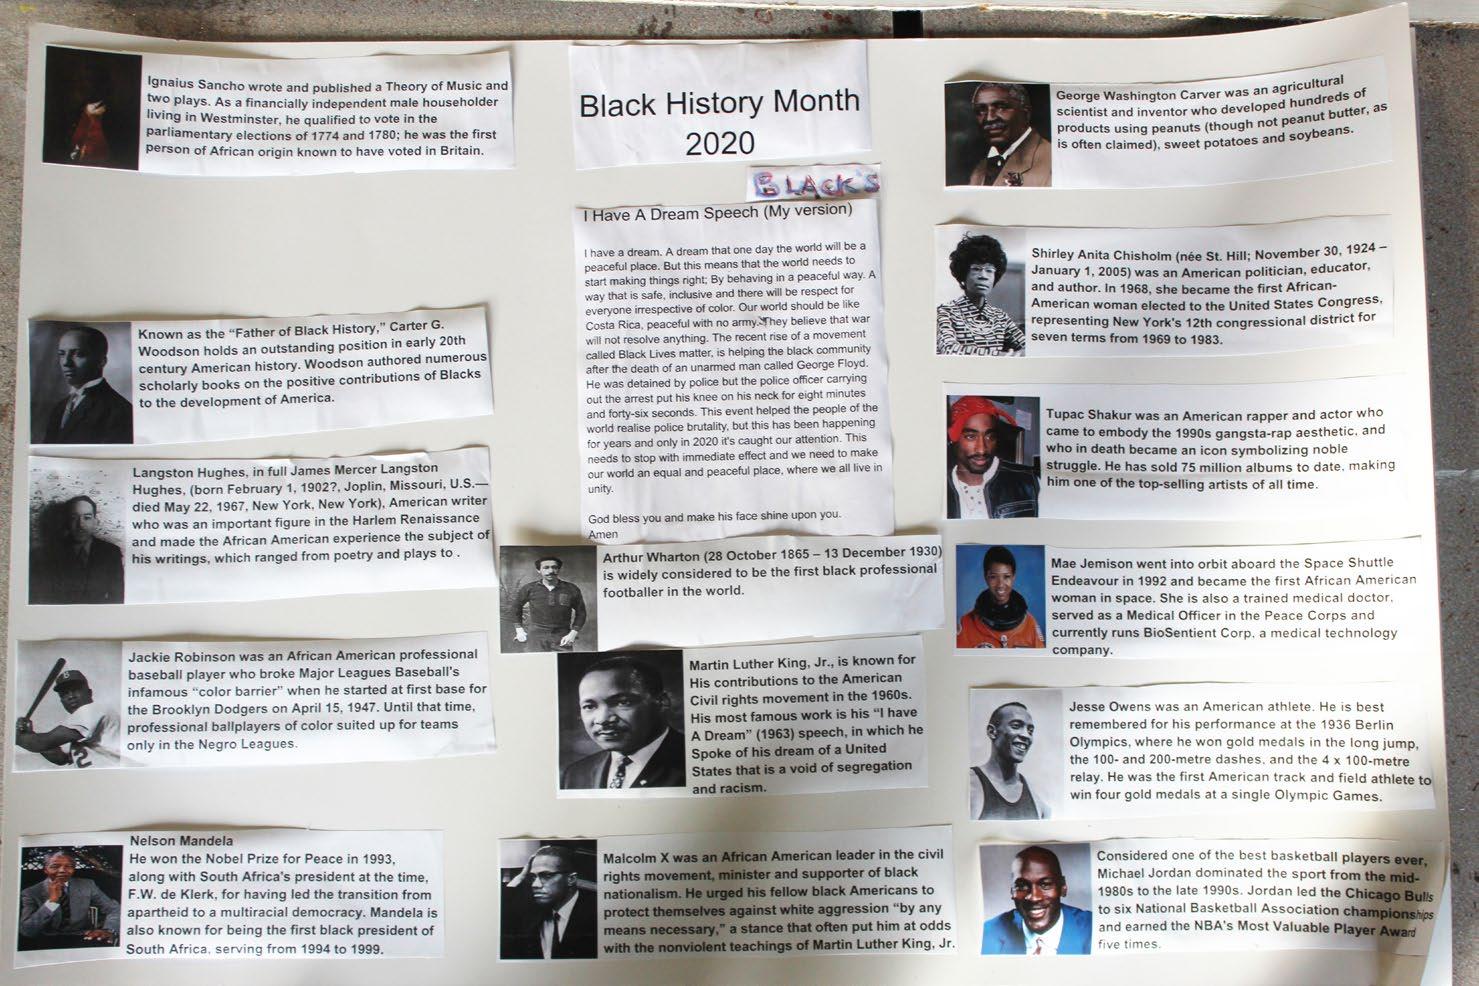 Ignaius Sancho wrote and published a Theory of Music and
two plays. As a financially independent male householder
living in Westminster, he qualified to vote in the
parliamentary elections of 1774 and 1780; he was the first
person of African origin known to have voted in Britain.
Known as the “Father of Black History,” Carter G.
Woodson holds an outstanding position in early 20th
century American history. Woodson authored numerous
scholarly books on the positive contributions of Blacks
to the development of America.
Langston Hughes, in full James Mercer Langston
Hughes, (born February 1, 1902?, Joplin, Missouri, U.S.—
died May 22, 1967, New York, New York), American writer
who was an important figure in the Harlem Renaissance
and made the African American experience the subject of
his writings, which ranged from poetry and plays to .
Jackie Robinson was an African American professional
baseball player who broke Major Leagues Baseball's
infamous “color barrier” when he started at first base for
the Brooklyn Dodgers on April 15, 1947. Until that time,
professional ballplayers of color suited up for teams
only in the Negro Leagues.
Nelson Mandela
He won the Nobel Prize for Peace in 1993,
along with South Africa's president at the time,
F.W. de Klerk, for having led the transition from
apartheid to a multiracial democracy. Mandela is
also known for being the first black president of
South Africa, serving from 1994 to 1999.
Black History Month
2020
BLACK'S
I Have A Dream Speech (My version)
I have a dream. A dream that one day the world will be a
peaceful place. But this means that the world needs to
start making things right; By behaving in a peaceful way. A
way that is safe, inclusive and there will be respect for
everyone irrespective of color. Our world should be like
Costa Rica, peaceful with no army. They believe that war
will not resolve anything. The recent rise of a movement
called Black Lives matter, is helping the black community
after the death of an unarmed man called George Floyd.
He was detained by police but the police officer carrying
out the arrest put his knee on his neck for eight minutes
and forty-six seconds. This event helped the people of the
world realise police brutality, but this has been happening
for years and only in 2020 it's caught our attention. This
needs to stop with immediate effect and we need to make
our world an equal and peaceful place, where we all live in
unity.
God bless you and make his face shine upon you.
Amen
Arthur Wharton (28 October 1865 – 13 December 1930)
is widely considered to be the first black professional
footballer in the world.
Martin Luther King, Jr., is known for
His contributions to the American
Civil rights movement in the 1960s.
His most famous work is his “I have
A Dream” (1963) speech, in which he
Spoke of his dream of a United
States that is a void of segregation
and racism.
Malcolm X was an African American leader in the civil
rights movement, minister and supporter of black
nationalism. He urged his fellow black Americans to
protect themselves against white aggression “by any
means necessary,” a stance that often put him at odds
with the nonviolent teachings of Martin Luther King, Jr.
George Washington Carver was an agricultural
scientist and inventor who developed hundreds of
products using peanuts (though not peanut butter, as
is often claimed), sweet potatoes and soybeans.
Shirley Anita Chisholm (née St. Hill; November 30, 1924 –
January 1, 2005) was an American politician, educator,
and author. In 1968, she became the first African-
American woman elected to the United States Congress,
representing New York's 12th congressional district for
seven terms from 1969 to 1983.
Tupac Shakur was an American rapper and actor who
came to embody the 1990s gangsta-rap aesthetic, and
who in death became an icon symbolizing noble
struggle. He has sold 75 million albums to date, making
him one of the top-selling artists of all time.
Mae Jemison went into orbit aboard the Space Shuttle
Endeavour in 1992 and became the first African American
woman in space. She is also a trained medical doctor,
served as a Medical Officer in the Peace Corps and
currently runs BioSentient Corp, a medical technology
company.
Jesse Owens was an American athlete. He is best
remembered for his performance at the 1936 Berlin
Olympics, where he won gold medals in the long jump,
the 100- and 200-metre dashes, and the 4 x 100-metre
relay. He was the first American track and field athlete to
win four gold medals at a single Olympic Games.
Considered one of the best basketball players ever,
Michael Jordan dominated the sport from the mid-
1980s to the late 1990s. Jordan led the Chicago Bulls
to six National Basketball Association championships
and earned the NBA's Most Valuable Player Award
five times.